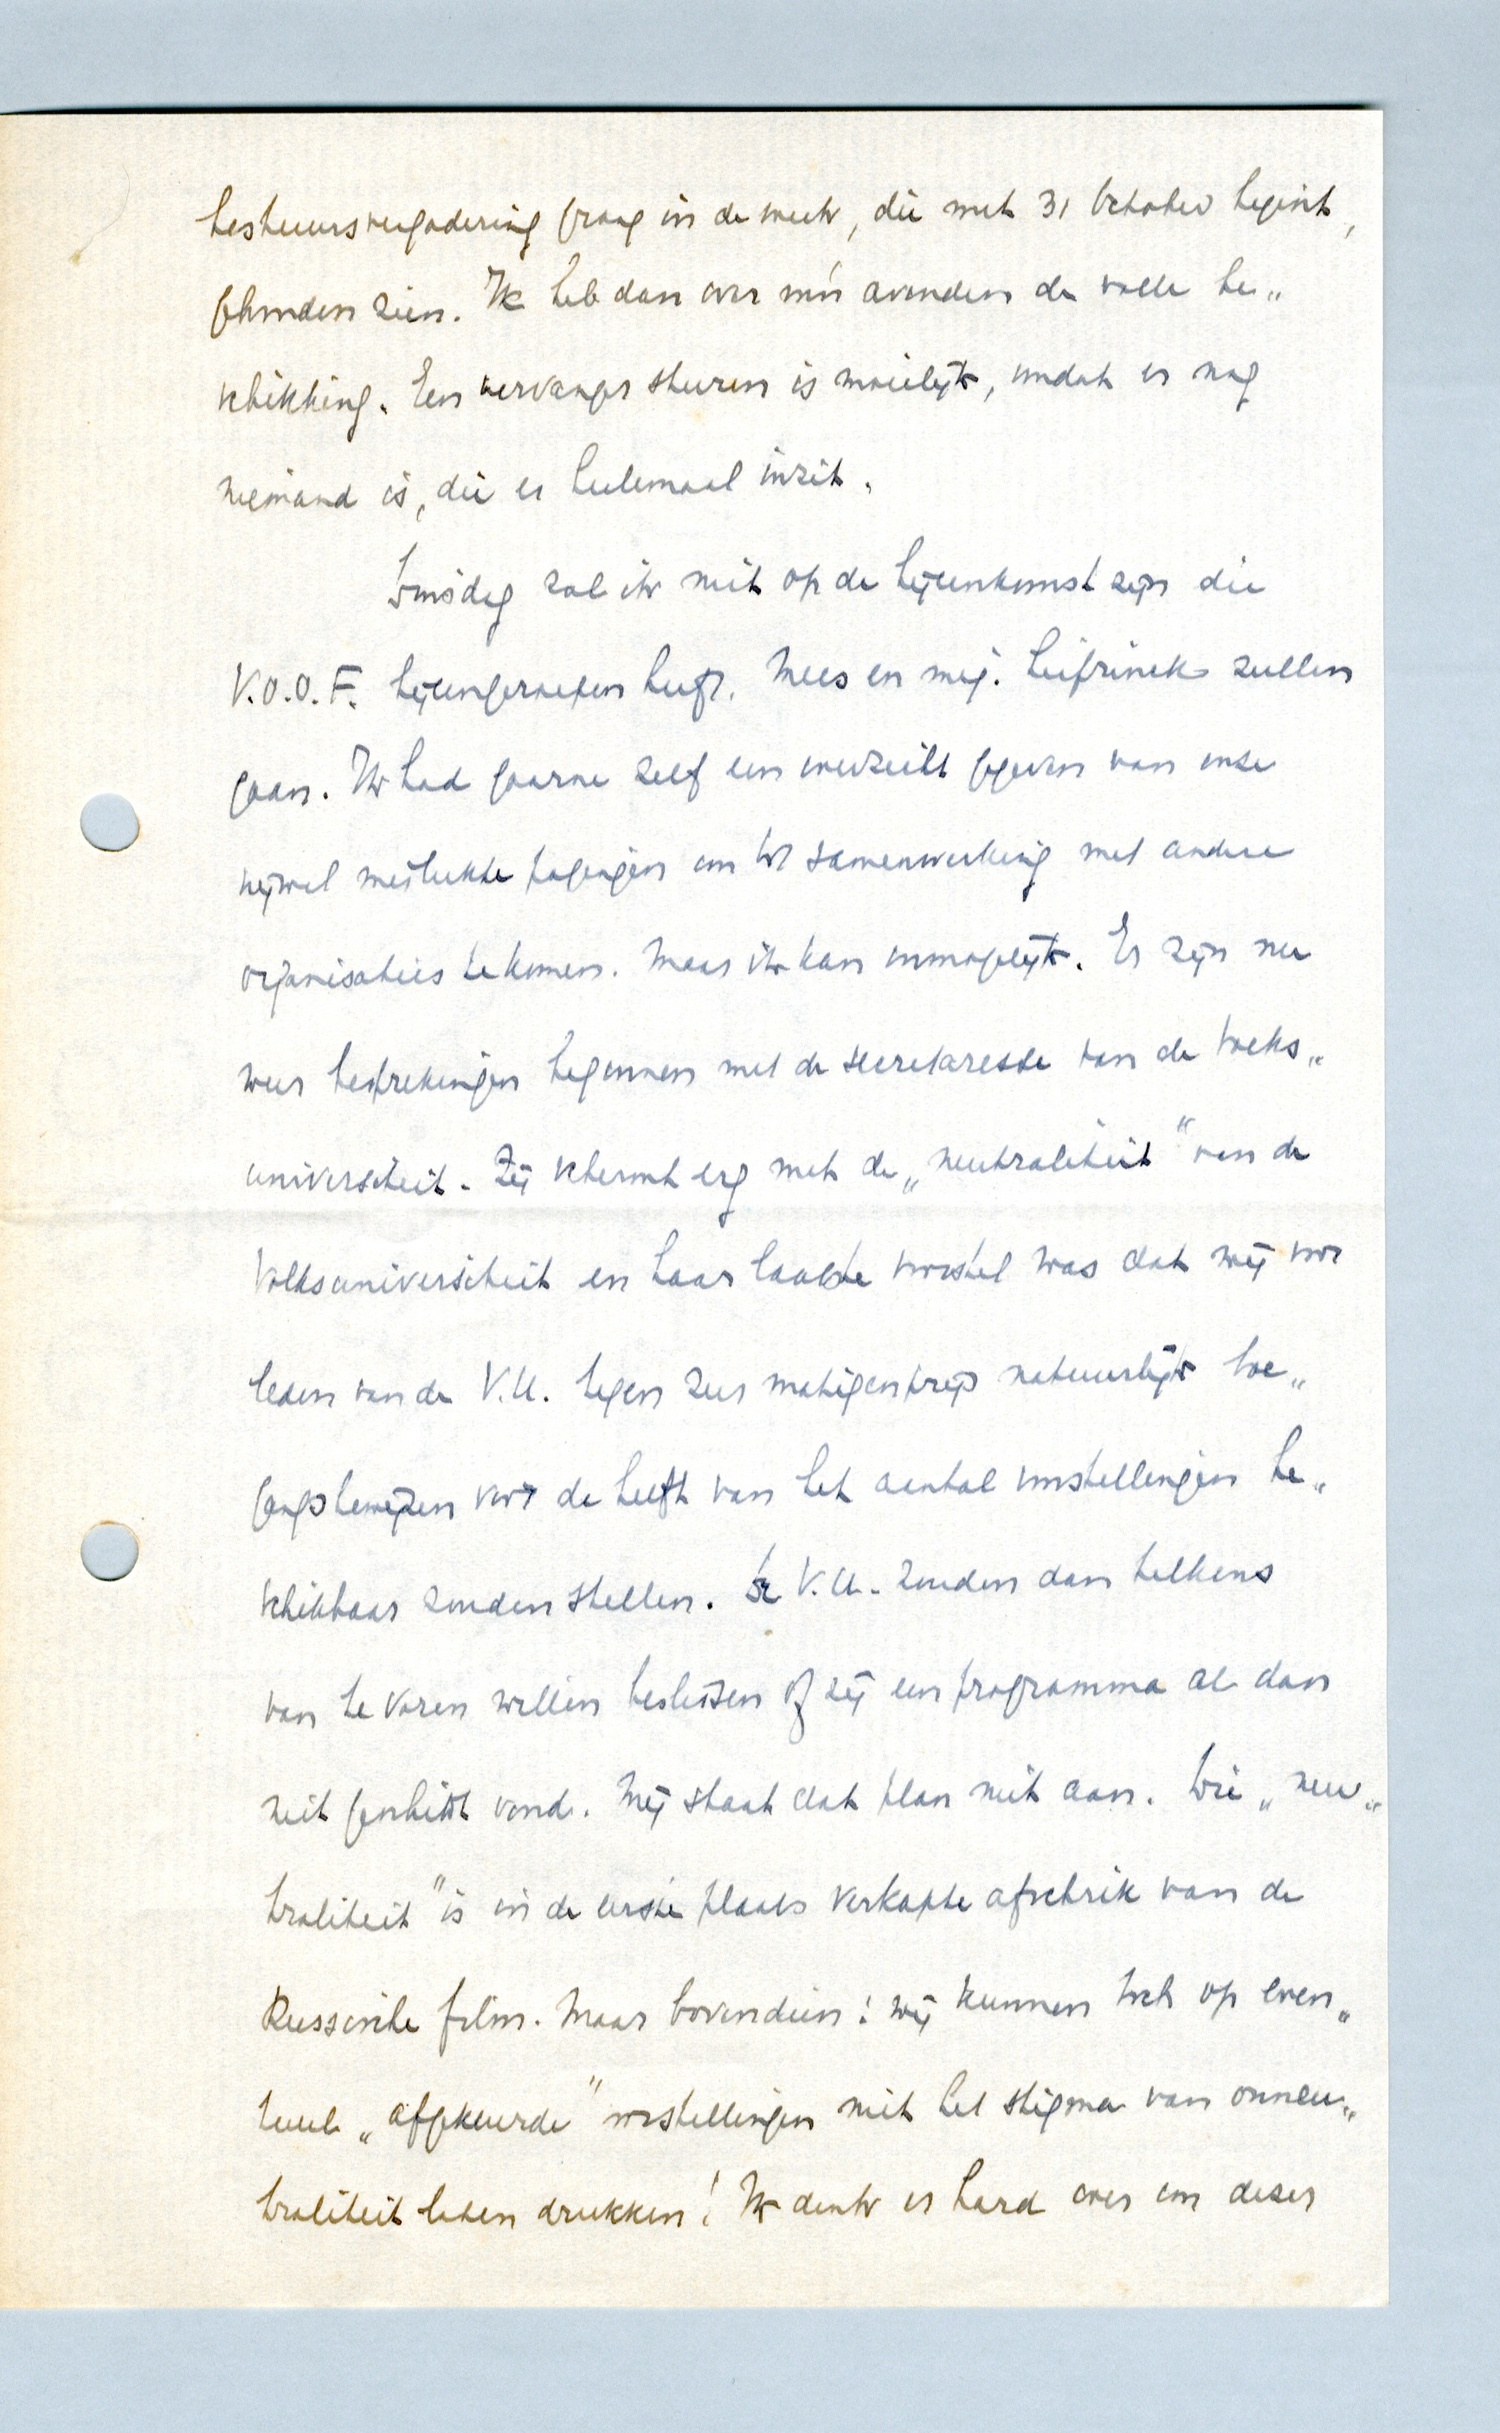 bestuursvergadering graag in de week, die met 31 October begint,
gehouden zien. Ik heb dan over mijn avonden de volle be„
schikking. Een vervanger sturen is moeilijk, omdat er nog
niemand is, die er heelemaal inzit.
Dinsdag zal ik niet op de bijeenkomst zijn die
V.O.O.F. bijeengeroepen heeft. Mees en mej. Leifrinck zullen
gaan. Ik had gaarne zelf een overzicht gegeven van onze
bijwel mislukte pogingen om tot samenwerking met andere
organisaties te komen. Maar ik kan onmogelijk. Er zijn nu
weer besprekingen begonnen met de secretaresse van de Volks„
universiteit. Zij schermt erg met de „neutraliteit" van de
Volksuniversiteit en haar laatste voorstel was dat wij voor
leden van de V.U. tegen zeer matigen prijs natuurlijk toe„
gangsbewijzen voor de helft van het aantal voorstellingen be„
schikbaar zouden stellen. De V.U. zouden dan telkens
van te voren willen beslissen of zij een programma al dan
niet geschikt vond. Mij staat dat plan niet aan. Die „neu„
traliteit" is in de eerste plaats verkapte afschrik van de
Russische film. Maar bovendien: wij kunnen toch op even„
tueele „afgekeurde" voorstellingen niet het stigma van onneu„
traliteit laten drukken! Ik denk er hard over om dezer